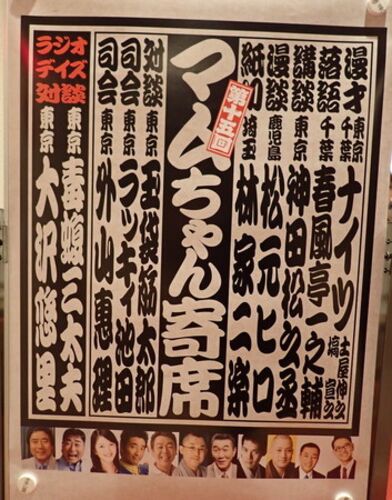 漫才 東京 千葉 ナイツ 土屋伸之 塙 宣之
落語 千葉 春風亭一之輔
講談 東京 神田松之丞
漫談 鹿児島 松元ヒロ
紙切り 埼玉 林家二楽
第十五回
マムちゃん寄席
対談 東京 玉袋筋太郎
司会 東京 ラッキィ池田
司会 東京 外山惠理
ラジオ
デイズ
対談
東京 毒蝮三太夫
東京 大沢悠里